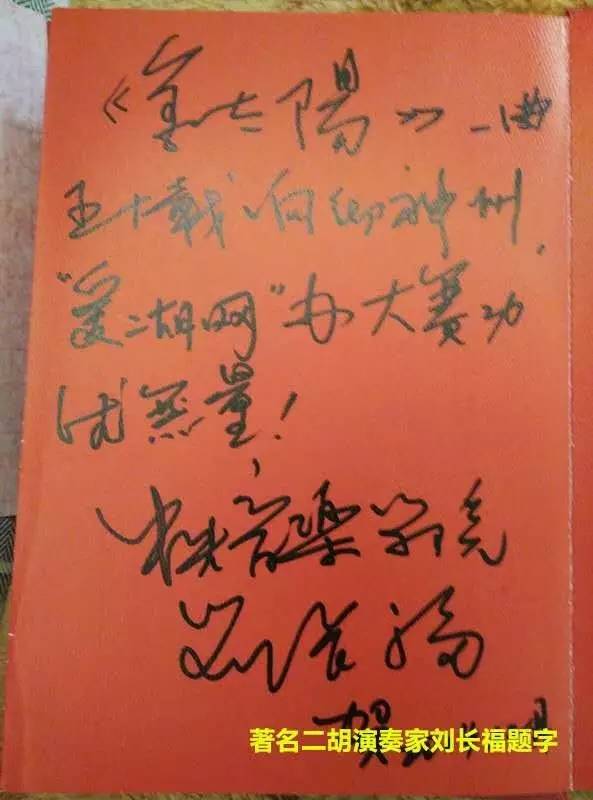 《金太陽》一曲
五十載响彻神州，
“爱二胡网”办大赛功
德無量！
中央音樂学院
刘长福
贺
著名二胡演奏家刘长福题字